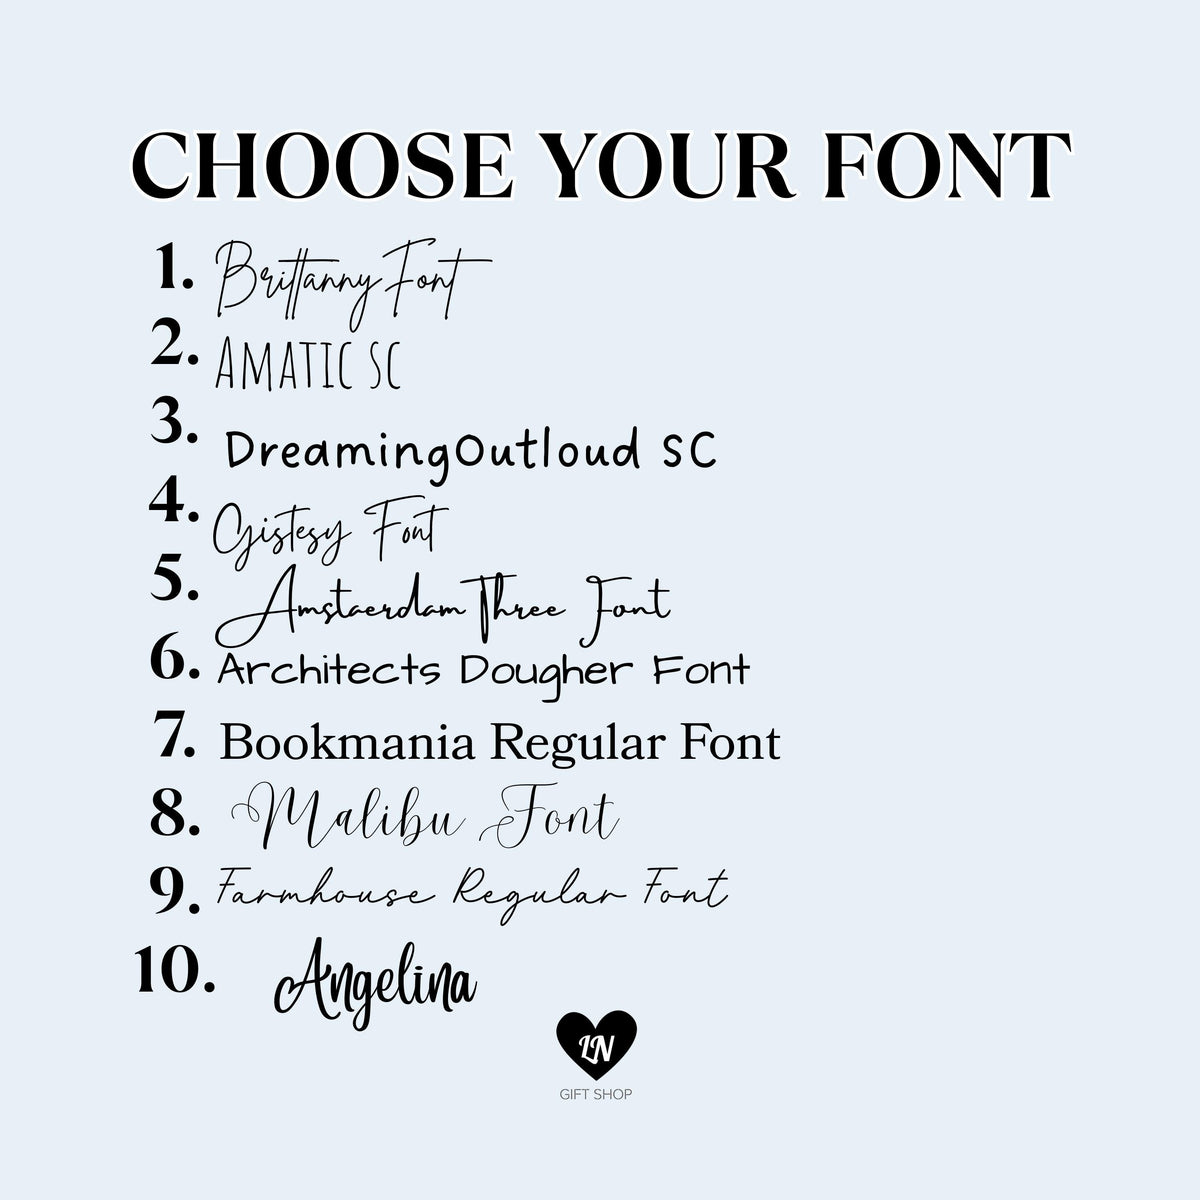 CHOOSE YOUR FONT
1. Brittanny Font
2. AMATIC SC
3. DreamingOutloud SC
4. Gistesy Font
5. Amstaerdam Three Font
6. Architects Dougher Font
7. Bookmania Regular Font
8. Malibu Font
9. Farmhouse Regular Font
10. Angelina
LN
GIFT SHOP